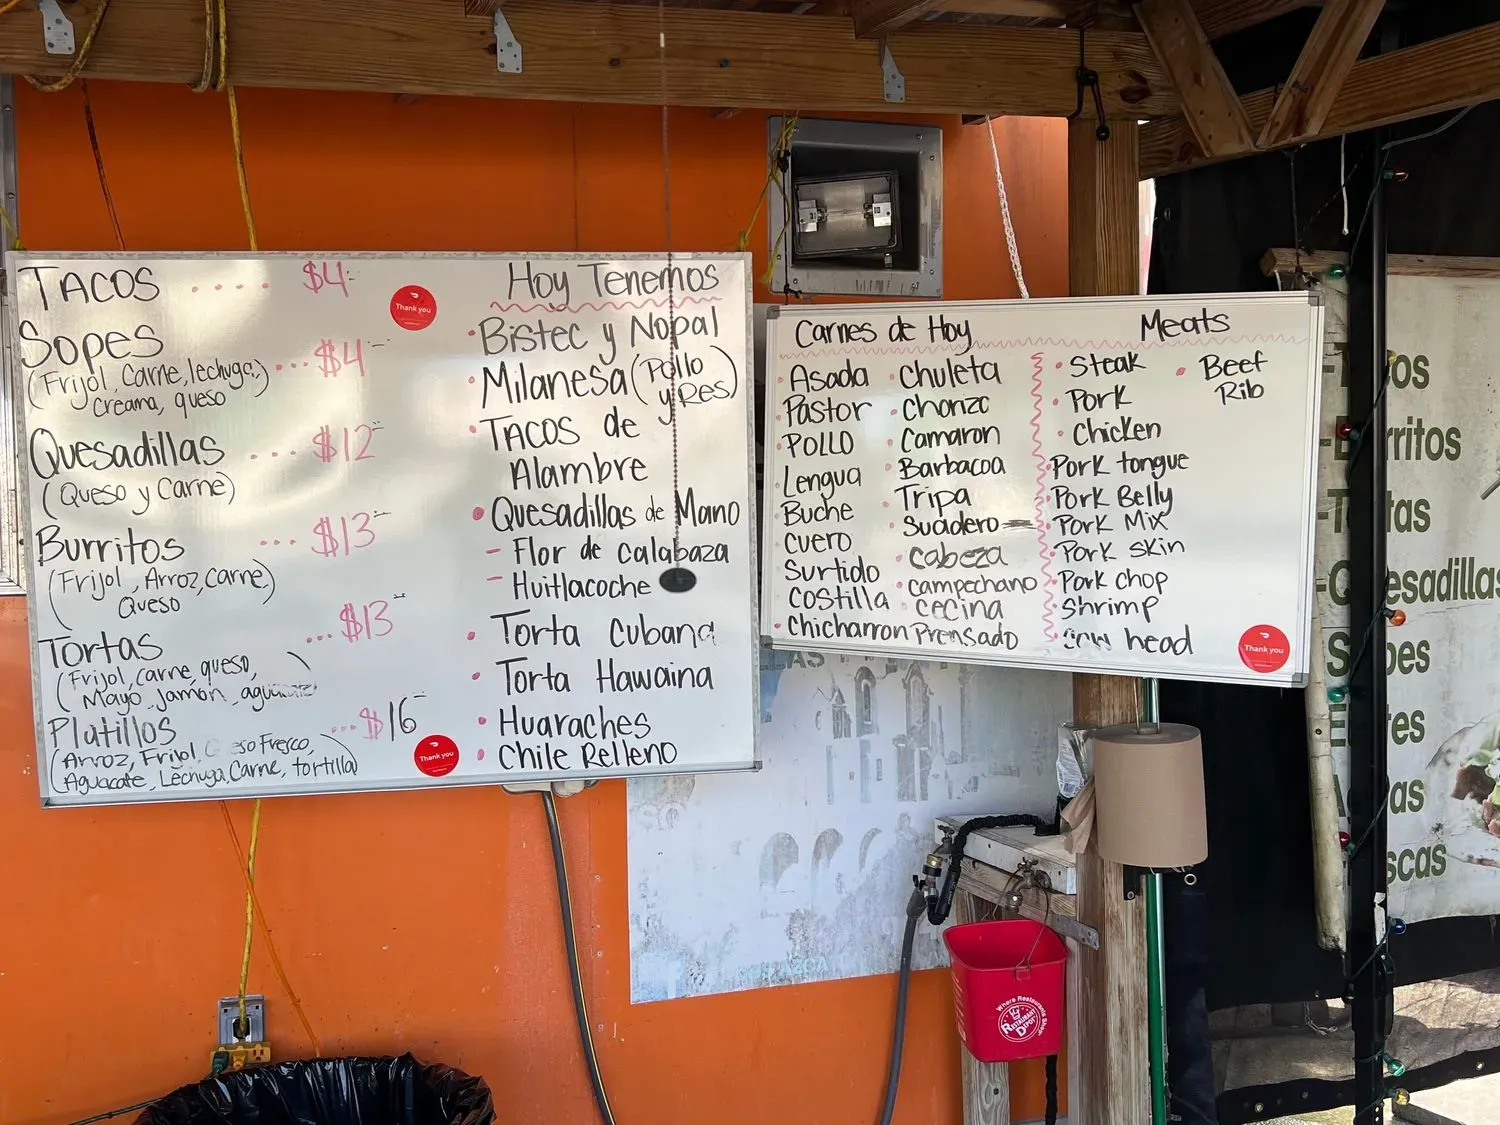 TACOS ..... $4
Sopes ... $4
(Frijol, Carne, lechuga,
Creama, queso)
Quesadillas .... $12
(Queso y Carne)
Burritos ... $13
(Frijol, Arroz, Carne)
Queso
Tortas ... $13
(Frijol, carne, queso,
Mayo, jamon,
Platillos ... $16
(Arroz, Frijol, Fresco,
Aguacate, Lechuga, Carne, tortilla)
Thank you
Thank you
Hoy Tenemos
Bistec y Nopal
Milanesa (Pollo
y Res)
TACOS de
Alambre
Quesadillas de Mano
- Flor de calabaza
- Huitlacoche
Torta Cubana
Torta Hawaina
Huaraches
Chile Relleno
Carnes de Hoy
Asada
Pastor
POLLO
Lengua
Buche
cuero
Surtido
COStilla
Chicharron
Chuleta
Chorizo
Camaron
Barbacoa
Tripa
Suadero
cabeza
campechano
cecina
Prensado
Meats
Steak
Pork
Chicken
Pork tongue
Pork Belly
Pork Mix
Pork skin
Pork chop
Shrimp
cow head
Beef
Rib
Thank you
Where Restaurants Shop
RESTAURANT
DEPOT